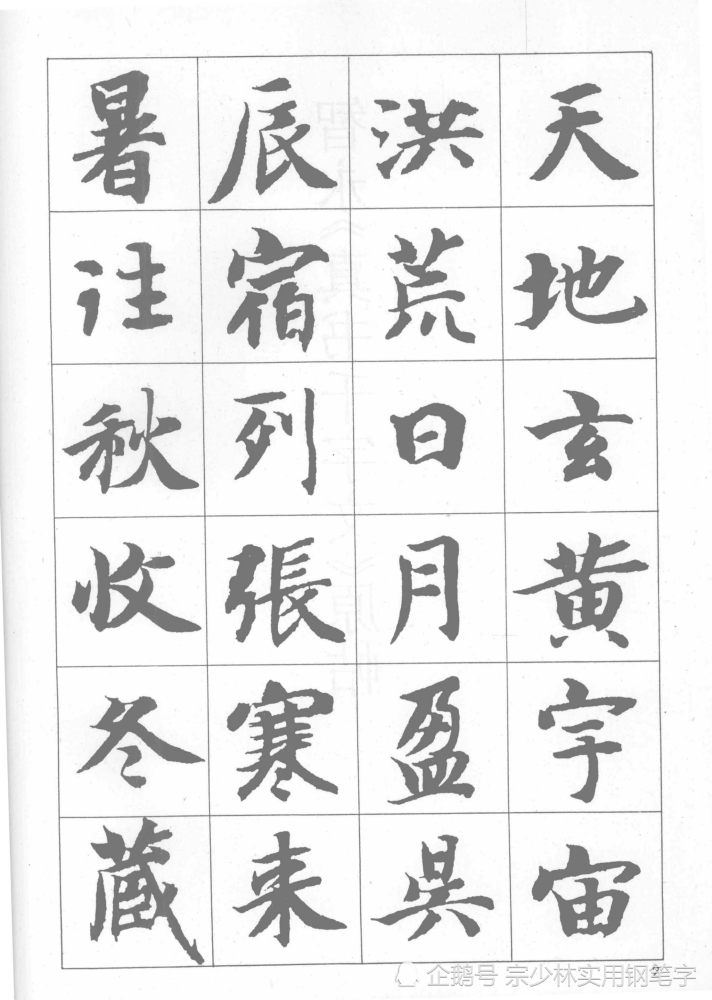 天地玄黄宇宙
洪荒日月盈昃
辰宿列張寒来
暑往秋收冬蔵
2
企鹅号 宗少林实用钢笔字